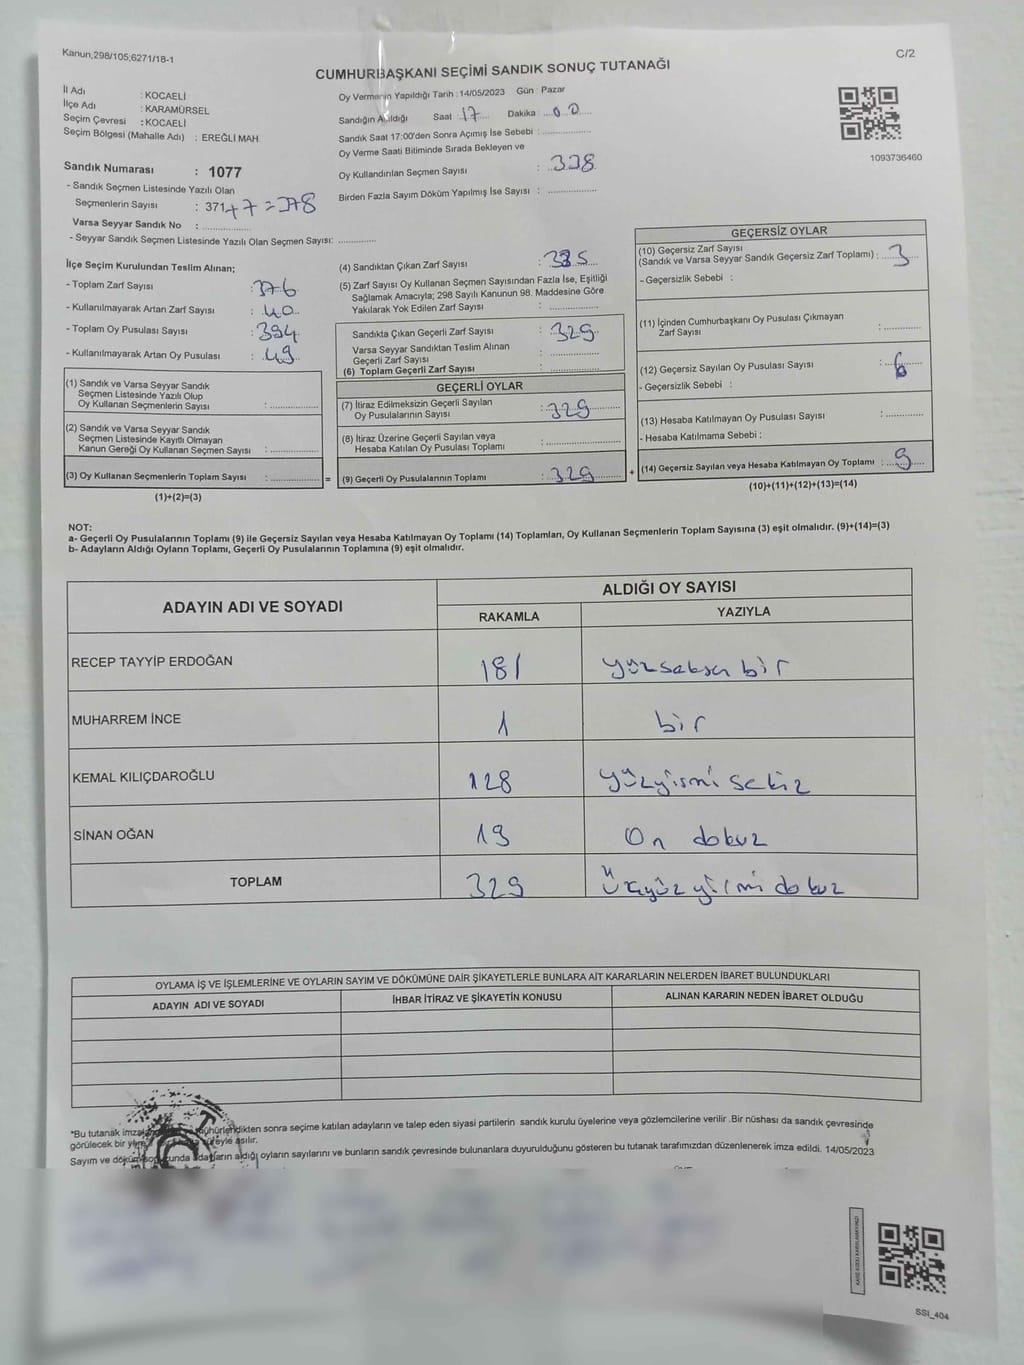 Kanun;298/105;6271/18-1
C/2
CUMHURBAŞKANI SEÇİMİ SANDIK SONUÇ TUTANAĞI
İl Adı : KOCAELİ
İlçe Adı : KARAMÜRSEL
Seçim Çevresi : KOCAELİ
Seçim Bölgesi (Mahalle Adı) : EREĞLİ MAH.
Oy Vermenin Yapıldığı Tarih : 14/05/2023 Gün : Pazar
Sandığın Açıldığı Saat 17 Dakika 00
Sandık Saat 17:00'den Sonra Açımış İse Sebebi :
Oy Verme Saati Bitiminde Sırada Bekleyen ve
Oy Kullandırılan Seçmen Sayısı : 338
Birden Fazla Sayım Döküm Yapılmış İse Sayısı :
1093736460
Sandık Numarası : 1077
- Sandık Seçmen Listesinde Yazılı Olan
Seçmenlerin Sayısı : 371+7=378
Varsa Seyyar Sandık No :
- Seyyar Sandık Seçmen Listesinde Yazılı Olan Seçmen Sayısı:
İlçe Seçim Kurulundan Teslim Alınan;
- Toplam Zarf Sayısı : 376
- Kullanılmayarak Artan Zarf Sayısı : 40
- Toplam Oy Pusulası Sayısı : 394
- Kullanılmayarak Artan Oy Pusulası : 49
(1) Sandık ve Varsa Seyyar Sandık
Seçmen Listesinde Yazılı Olup
Oy Kullanan Seçmenlerin Sayısı :
(2) Sandık ve Varsa Seyyar Sandık
Seçmen Listesinde Kayıtlı Olmayan
Kanun Gereği Oy Kullanan Seçmen Sayısı :
(3) Oy Kullanan Seçmenlerin Toplam Sayısı : =
(1)+(2)=(3)
(4) Sandıktan Çıkan Zarf Sayısı : 335
(5) Zarf Sayısı Oy Kullanan Seçmen Sayısından Fazla İse, Eşitliği
Sağlamak Amacıyla; 298 Sayılı Kanunun 98. Maddesine Göre
Yakılarak Yok Edilen Zarf Sayısı :
Sandıkta Çıkan Geçerli Zarf Sayısı : 329
Varsa Seyyar Sandıktan Teslim Alınan
Geçerli Zarf Sayısı :
(6) Toplam Geçerli Zarf Sayısı :
GEÇERLİ OYLAR
(7) İtiraz Edilmeksizin Geçerli Sayılan
Oy Pusulalarının Sayısı : 329
(8) İtiraz Üzerine Geçerli Sayılan veya
Hesaba Katılan Oy Pusulası Toplamı :
(9) Geçerli Oy Pusulalarının Toplamı : 329 +
GEÇERSİZ OYLAR
(10) Geçersiz Zarf Sayısı
(Sandık ve Varsa Seyyar Sandık Geçersiz Zarf Toplamı) : 3
- Geçersizlik Sebebi :
(11) İçinden Cumhurbaşkanı Oy Pusulası Çıkmayan
Zarf Sayısı :
(12) Geçersiz Sayılan Oy Pusulası Sayısı : 6
- Geçersizlik Sebebi :
(13) Hesaba Katılmayan Oy Pusulası Sayısı :
- Hesaba Katılmama Sebebi :
(14) Geçersiz Sayılan veya Hesaba Katılmayan Oy Toplamı : 9
(10)+(11)+(12)+(13)=(14)
NOT:
a- Geçerli Oy Pusulalarının Toplamı (9) ile Geçersiz Sayılan veya Hesaba Katılmayan Oy Toplamı (14) Toplamları, Oy Kullanan Seçmenlerin Toplam Sayısına (3) eşit olmalıdır. (9)+(14)=(3)
b- Adayların Aldığı Oyların Toplamı, Geçerli Oy Pusulalarının Toplamına (9) eşit olmalıdır.
ADAYIN ADI VE SOYADI
ALDIĞI OY SAYISI
RAKAMLA YAZIYLA
RECEP TAYYİP ERDOĞAN 181 yüzseksen bir
MUHARREM İNCE 1 bir
KEMAL KILIÇDAROĞLU 128 yüzyirmi sekiz
SİNAN OĞAN 19 On dokuz
TOPLAM 329 Üçyüz yirmi dokuz
OYLAMA İŞ VE İŞLEMLERİNE VE OYLARIN SAYIM VE DÖKÜMÜNE DAİR ŞİKAYETLERLE BUNLARA AİT KARARLARIN NELERDEN İBARET BULUNDUKLARI
ADAYIN ADI VE SOYADI İHBAR İTİRAZ VE ŞİKAYETİN KONUSU ALINAN KARARIN NEDEN İBARET OLDUĞU
*Bu tutanak mühürlendikten sonra seçime katılan adayların ve talep eden siyasi partilerin sandık kurulu üyelerine veya gözlemcilerine verilir .Bir nüshası da sandık çevresinde
görülecek bir yere süreyle asılır.
Sayım ve döküm sonucunda adayların aldığı oyların sayılarını ve bunların sandık çevresinde bulunanlara duyurulduğunu gösteren bu tutanak tarafımızdan düzenlenerek imza edildi. 14/05/2023
SSI_404